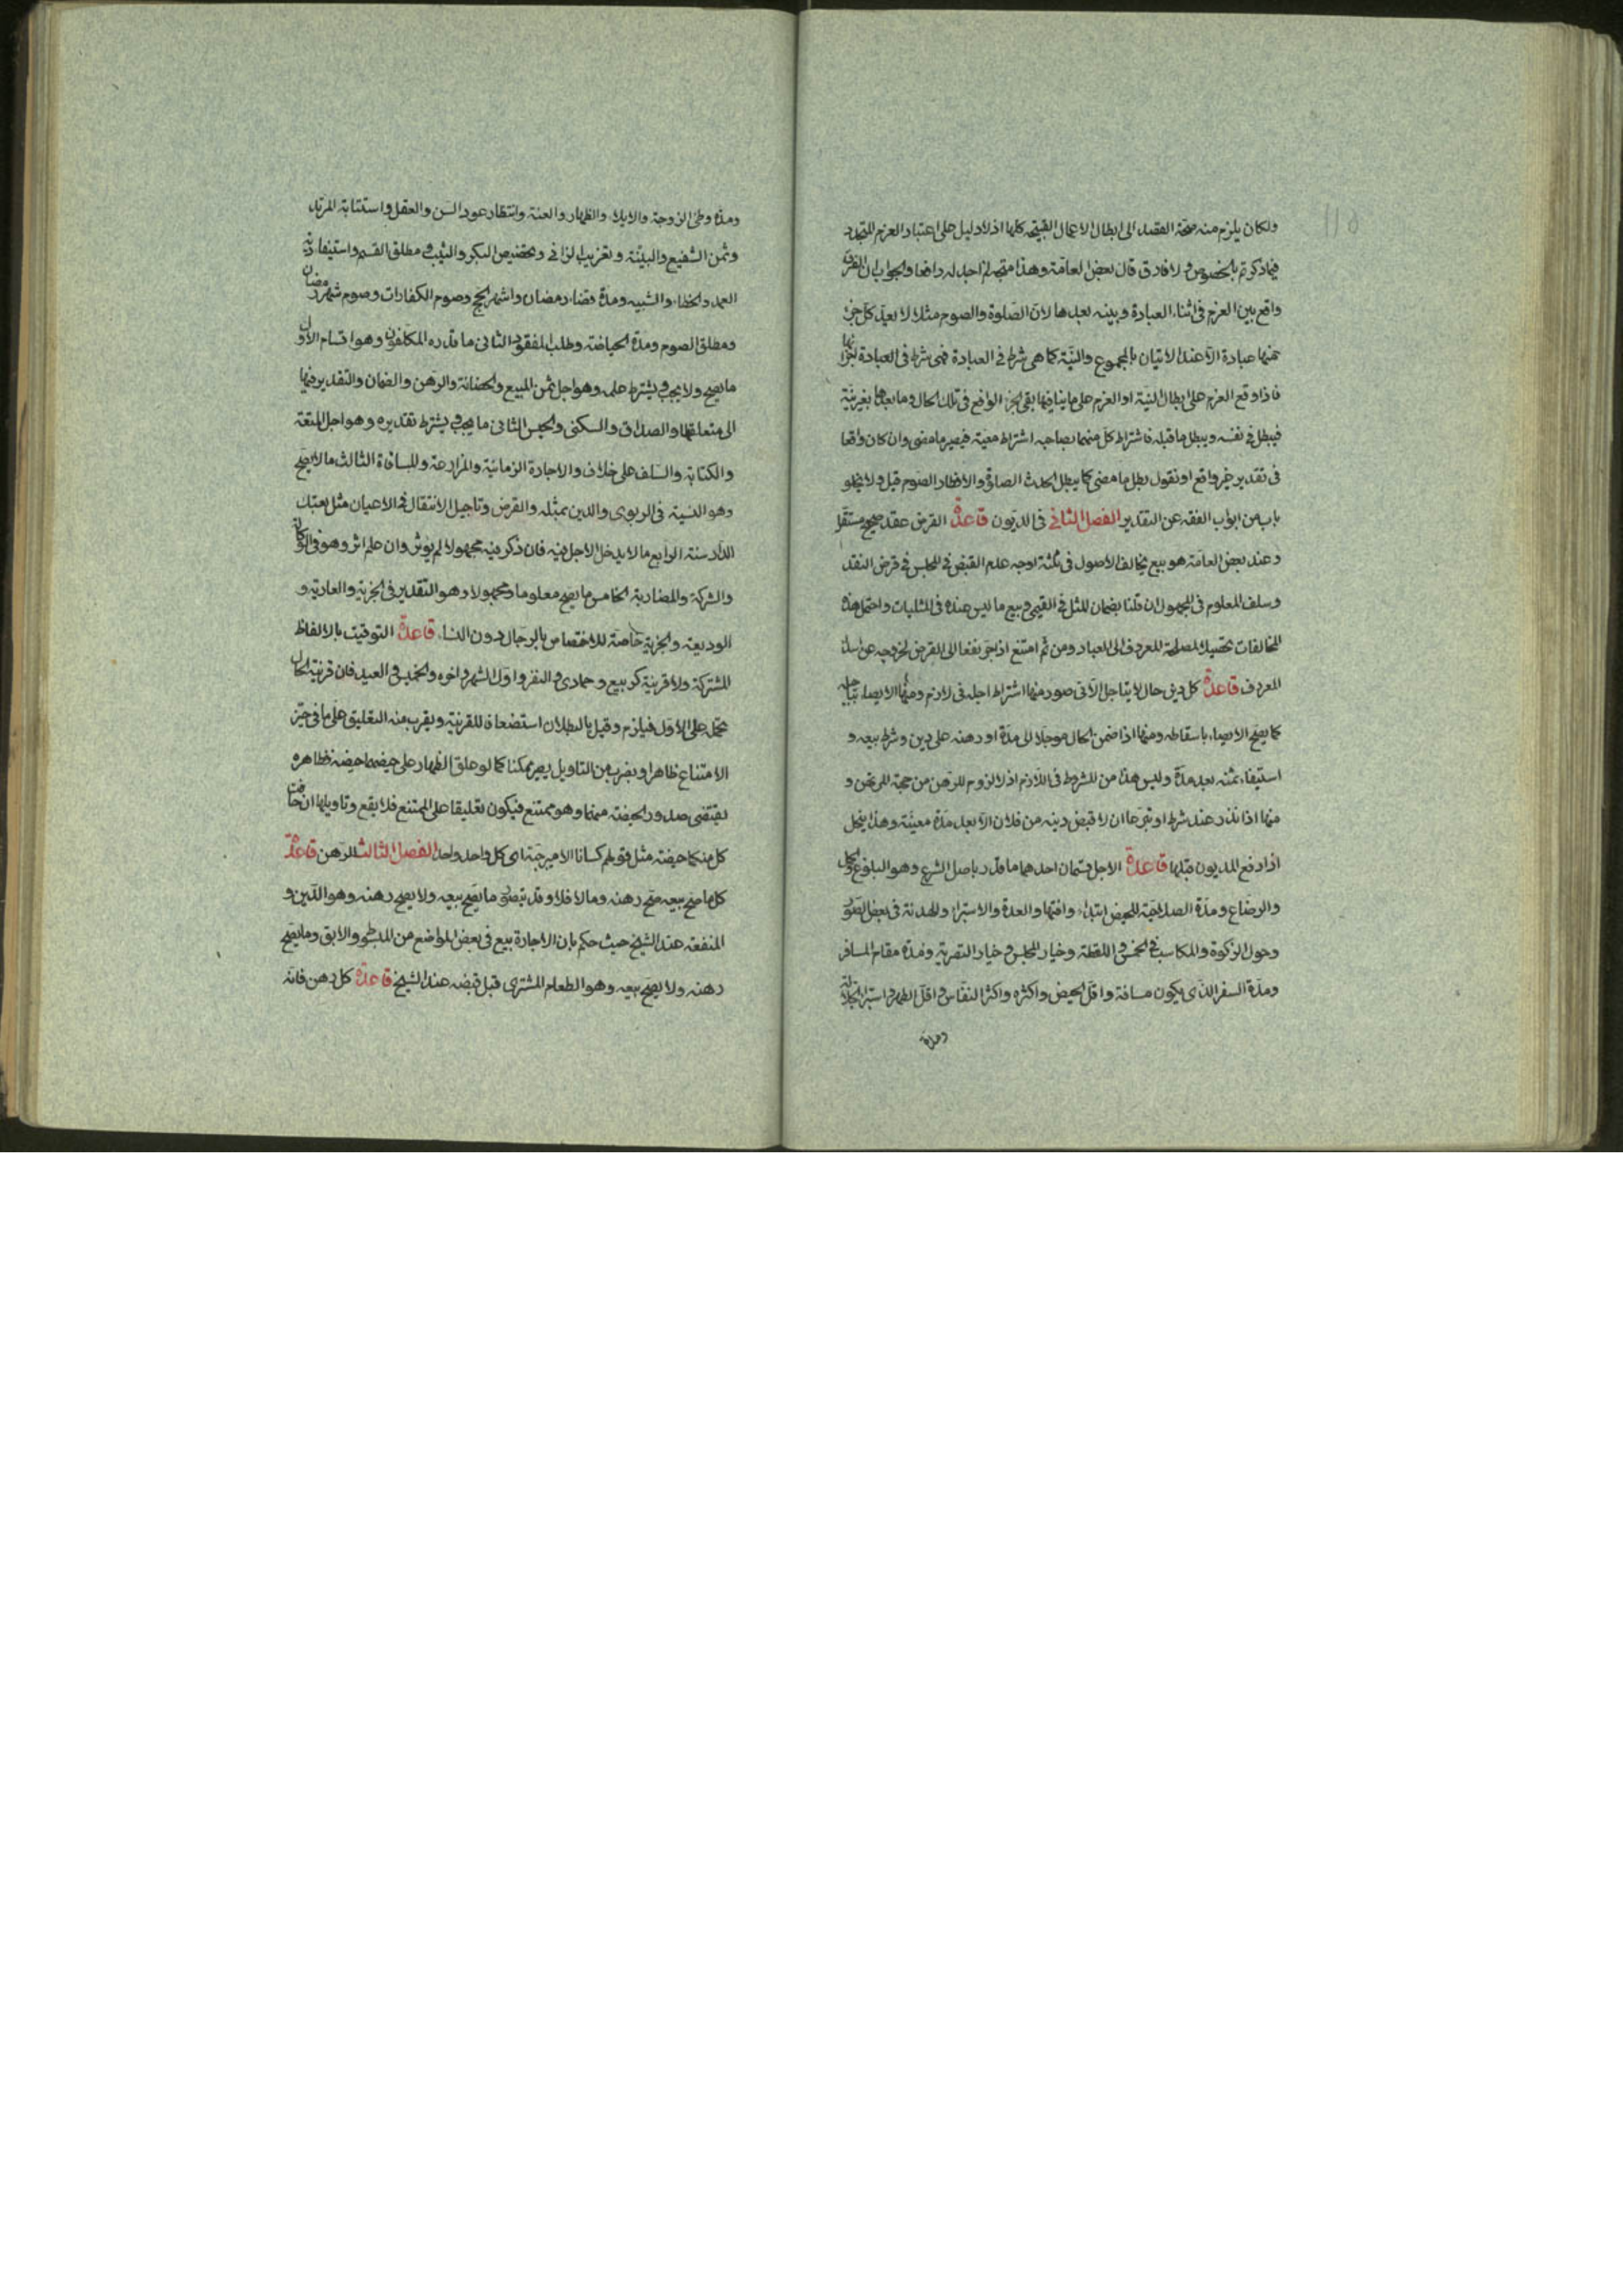 ولكان يلزم منه صحة القصد الى ابطال الاعمال القبيحة كلها اذ لا دليل على اعتبار العزم المتجدد
فيما ذكرتم بالخصوص ولا فارق قال بعض العامة وهذا متجه لم اجد له دافعا والجواب ان الفرق
واقع بين العزم فى اثناء العبادة وبينه بعدها لان الصلوة والصوم مثلا لا يعد كل جزء
منها عبادة الا عند الاتيان بالمجموع والنية كما هى شرط فى العبادة فهى شرط فى العبادة
فاذا وقع العزم على ابطال النية او العزم على ما ينافيها بقى الجزء الواقع فى تلك الحال وما بعدها بغير نية
فيبطل فى نفسه ويبطل ما قبله فاشتراط كل منهما بصاحبه اشتراط معية فيصير ما مضى وان كان واقعا
فى تقدير غير واقع او نقول بطل ما مضى كما يبطل الحدث الصلوة والافطار الصوم قيل ولا يخلو
باب من ابواب الفقه عن التقدير الفصل الثانى فى الديون قاعدة القرض عقد صحيح مستقل
وعند بعض العامة هو بيع يخالف الاصول فى ثلثة اوجه عدم القبض فى المجلس فى قرض النقد
وسلف المعلوم فى المجهول ان قلنا بضمان المثل فى القيمى وبيع ما ليس عنده فى المثليات واحتمل هذه
المخالفات تحصيلا لمصلحة المعروف الى العباد ومن ثم امتنع اذا جر نفعا الى المقرض لخروجه عن
المعروف قاعدة كل دين حال لا يتاجل الا فى صور منها اشتراط اجله فى لازم ومنها الايصاء بتاجيله
كما يصح الايصاء باسقاطه ومنها اذا ضمن الحال موجلا الى مدة او رهنه على دين وشرط بيعه و
استيفاء ثمنه بعد مدة وليس هذا من الشروط فى اللازم اذ لا لزوم للرهن من جهة المرتهن و
منها اذا نذر عند شرط او تبرعا ان لا قبض دينه من فلان الا بعد مدة معينة وهذا ينحل
اذا دفع المديون قبلها قاعدة الاجل قسمان احدهما ما قدر باصل الشرع وهو البلوغ
والرضاع ومدة الصلاحية للحيض ابتداء وانتهاء والعدة والاستبراء والهدنة فى بعض الصور
وحول الزكوة والمكاسب فى الخمس واللقطة وخيار المجلس وخيار التصرية ومدة مقام المسافر
ومدة السفر الذى يكون مسافة واقل الحيض واكثره واكثر النفاس واقل الطهر واستبراء الجلالة
ومدة
ومدة وطى الزوجة والايلاء والظهار والعنة وانتظار عود السن والعقل واستتابة المرتد
وثمن الشفيع والبينة وتغريب الزانى وتخصيص البكر والثيب ومطلق القسم واستيفاء دية
العمد والخطاء والشبيه ومدة قضاء رمضان واشهر الحج وصوم الكفارات وصوم شهر رمضان
ومطلق الصوم ومدة الحياضة وطلب المفقود الثانى ما قدره المكلفون وهو اقسام الاول
ما يصح ولا يجب ويشترط علمه وهو اجل ثمن المبيع والحضانة والرهن والضمان والتقدير فيها
الى متعلقها والصداق والسكنى والحبس الثانى ما يجب ويشترط تقديره وهو اجل المتعة
والكتابة والسلف على خلاف والاجارة الزمانية والمزارعة والمساقاة الثالث ما لا يصح
وهو النسية فى الربوى والدين بمثله والقرض وتاجيل الانتقال فى الاعيان مثل بعتك
الدار سنة الرابع ما لا يدخل الاجل فيه فان ذكر فيه مجهولا لم يوثر وان علم اثر وهو فى الوكالة
والشركة والمضاربة الخامس ما يصح معلوما ومجهولا وهو التقدير فى الجزية والعارية و
الوديعة والجزية خاصة للاختصاص بالرجال دون النساء قاعدة التوقيت بالالفاظ
المشتركة ولا قرينة كربيع وجمادى والنفر واول الشهر واخره والخميس والعيد فان قرينة الحال
تحمله على الاول فيلزم وقيل بالبطلان استضعافا للقرينة ويقرب منه التعليق على ما فى حيز
الامتناع ظاهرا وبضرب من التاويل يصير ممكنا كما لو علق الظهار على حيضهما حيضة فظاهره
يقتضى صدور الحيضة منهما وهو ممتنع فيكون تعليقا على الممتنع فلا يقع وتاويلها ان حاضت
كل منكما حيضة مثل قولهم كسانا الامير جبة اى كل واحد واحد الفصل الثالث الرهن قاعدة
كل ما صح بيعه صح رهنه وما لا فلا وقد يتصور ما يصح بيعه ولا يصح رهنه وهو الدين و
المنفعة عند الشيخ حيث حكم بان الاجارة بيع فى بعض المواضع من المبسوط والابق وما يصح
رهنه ولا يصح بيعه وهو الطعام المشترى قبل قبضه عند الشيخ قاعدة كل رهن فانه